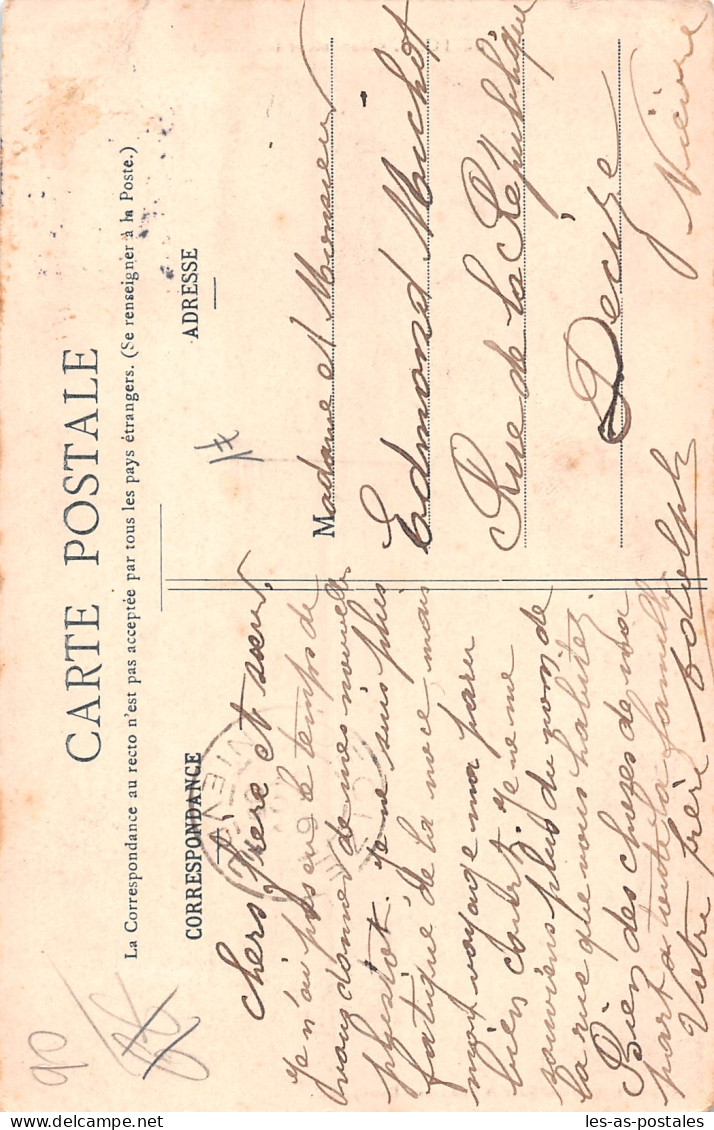 CARTE POSTALE
La Correspondance au recto n'est pas acceptée par tous les pays étrangers. (Se renseigner à la Poste.)
CORRESPONDANCE
chers frère et sœur
Je n'ai pas eu le temps de
vous donner de mes nouvelles
plustot. Je ne suis plus
fatigué de la noce, mais
mon voyage m'a paru
bien court. Je ne me
souviens plus du nom de
la rue que vous habitez.
Bien des choses de ma
part a toute la famille
Votre frère Adolphe
ADRESSE
Madame et Monsieur
Edmond Michot
Rue de la République
Decize
Nièvre
90
les-as-postales